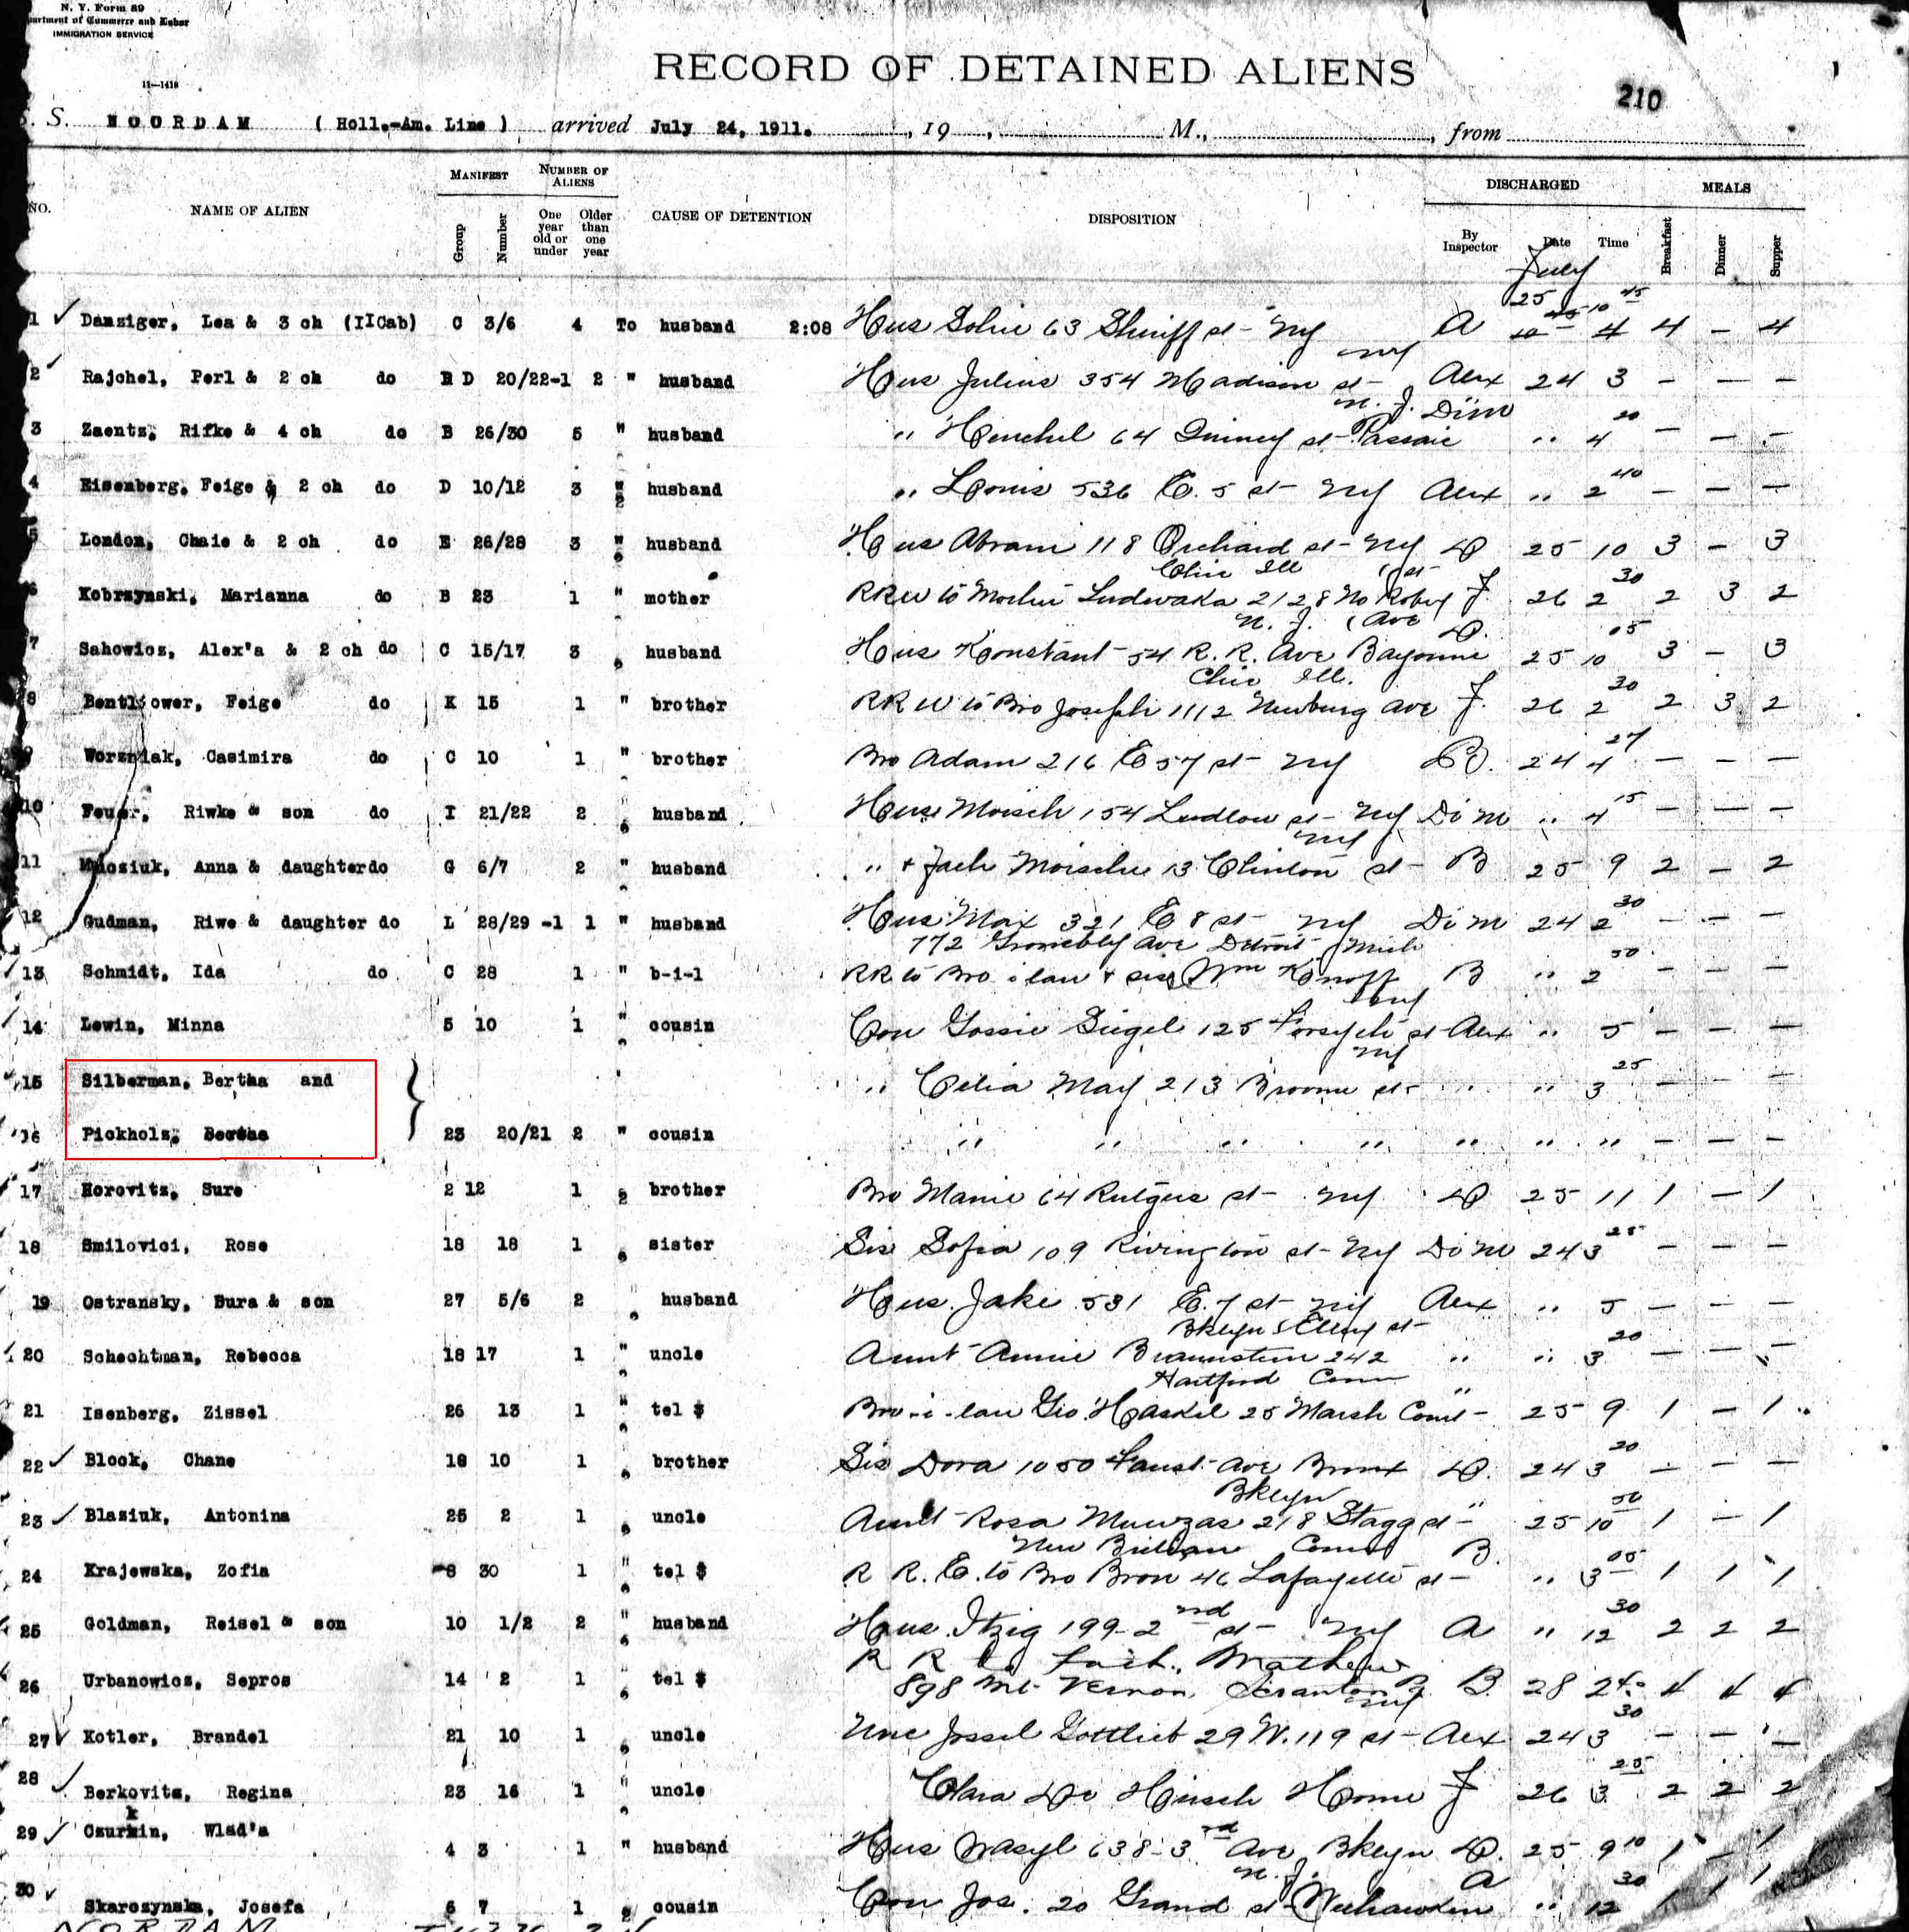 N. Y. Form 89
Department of Commerce and Labor
IMMIGRATION SERVICE
11—1418
RECORD OF DETAINED ALIENS
210
S. S. NOORDAM ( Holl.-Am. Line ) arrived July 24, 1911. , 19 , M., , from
NO. NAME OF ALIEN MANIFEST Group Number NUMBER OF ALIENS One year old or under Older than one year CAUSE OF DETENTION DISPOSITION DISCHARGED By Inspector Date Time MEALS Breakfast Dinner Supper
July
1 Danziger, Lea & 3 ch (IICab) C 3/6 4 To husband 2:08 Hus 63 Sheriff st- NY A 25 10 45 4 — 4
NY
2 Rajchel, Perl & 2 ch do D 20/22-1 2 " husband Hus Julius 354 Madison st- Alex 24 3 — — —
N. J.
3 Zaentz, Rifke & 4 ch do B 26/30 5 " husband " 64 st- Passaic Dim " 4 20 — — —
4 Eisenberg, Feige & 2 ch do D 10/12 3 " husband " Louis 536 E. 5 st- NY Alex " 2 40 — — —
5 London, Chaie & 2 ch do E 26/28 3 " husband Hus Abram 118 Orchard st- NY 25 10 3 — 3
Chic Ill st-
6 Kobrzynski, Marianna do B 23 1 " mother RRW to Mother Ludwaka 2128 No Robey J. 26 2 30 2 3 2
N. J. Ave
7 Sahowicz, Alex'a & 2 ch do C 15/17 3 " husband Hus Konstant 54 R. R. Ave Bayonne 25 10 05 3 — 3
Chic Ill.
8 Bentlower, Feige do K 15 1 " brother RRW to Bro Joseph 1112 Newburg Ave J. 26 2 30 2 3 2
9 Worzniak, Casimira do C 10 1 " brother Bro Adam 216 E 57 st- NY B. 24 4 27 — — —
10 Feuer, Riwke & son do I 21/22 2 " husband Hus Moisch 154 Ludlow st- NY Dim " 4 15 — — —
NY
11 Anna & daughter do G 6/7 2 " husband " + Moische 13 Clinton st- B 25 9 2 — 2
12 Gudman, Riwe & daughter do L 28/29 -1 1 " husband Hus Max 321 E 8 st- NY Dim 24 2 30 — — —
772 Ave Detroit Mich
13 Schmidt, Ida do C 28 1 " b-i-l RR to Bro i law & sis Wm Konoff B " 2 50 — — —
NY
14 Lewin, Minna 5 10 1 " cousin Cou Gossie Siegel 125 Forsyth st- Alex " 5 — — —
NY
15 Silberman, Bertha and " Celia May 213 Broome st- " " 3 25 — — —
16 Pickholz, Bertha 23 20/21 2 " cousin " " " " " " " — — —
17 Horovitz, Sure 2 12 1 " brother Bro Manie 64 Rutgers st- NY 25 11 1 — 1
18 Smilovici, Rose 18 18 1 " sister Sis Sofia 109 Rivington st- NY Dim 24 3 25 — — —
19 Ostransky, Bura & son 27 5/6 2 " husband Hus. Jake 531 E. 7 st- NY Alex " 5 — — —
Bklyn Ellery st-
20 Schechtman, Rebecca 18 17 1 " uncle Aunt Annie Braunstein 242 " " 3 20 — — —
Hartford Conn
21 Isenberg, Zissel 26 13 1 " tel $ Bro-i-law Geo. Haskel 25 Marsh Court- " 25 9 1 — 1
22 Block, Chane 18 10 1 " brother Sis Dora 1050 Ave Bronx 24 3 20 — — —
Bklyn
23 Blaziuk, Antonina 25 2 1 " uncle Aunt Rosa 218 Stagg st- " 25 10 50 1 — 1
New Britain Conn
24 Krajewska, Zofia 8 30 1 " tel $ R R. E. to Bro Bron 46 Lafayette st- B. " 3 05 1 1 1
25 Goldman, Reisel & son 10 1/2 2 " husband Hus. Itzig 199-2nd st- NY A " 12 30 2 2 2
R R to Fath. Mathew
26 Urbanowicz, Sepros 14 2 1 " tel $ 898 Mt Vernon, Scranton B. 28 2 4 4 4
NY
27 Kotler, Brandel 21 10 1 " uncle Unc Jossel Gottlieb 29 W. 119 st- Alex 24 3 30 — — —
28 Berkovits, Regina 23 16 1 " uncle Clara De Hirsch Home J 26 3 25 2 2 2
29 Czurkin, Wlad'a 4 3 1 " husband Hus Wasyl 638-3rd Ave Bklyn 25 9 10 1 — 1
N. J.
30 Skarozynska, Josefa 6 7 1 " cousin Cou Jos. 20 Grand st- Weehawken A " 12 30 1 1 1